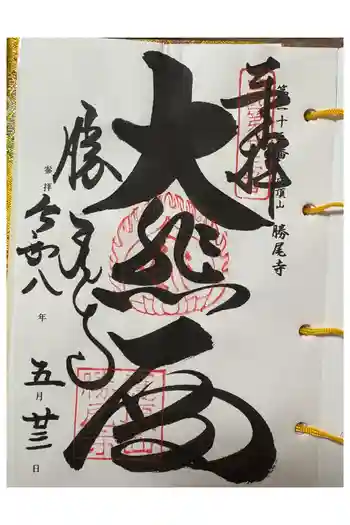 奉拝
第二十三番 應頂山 勝尾寺
大悲閣
勝尾寺
参拝 令和八年 五月廿三日